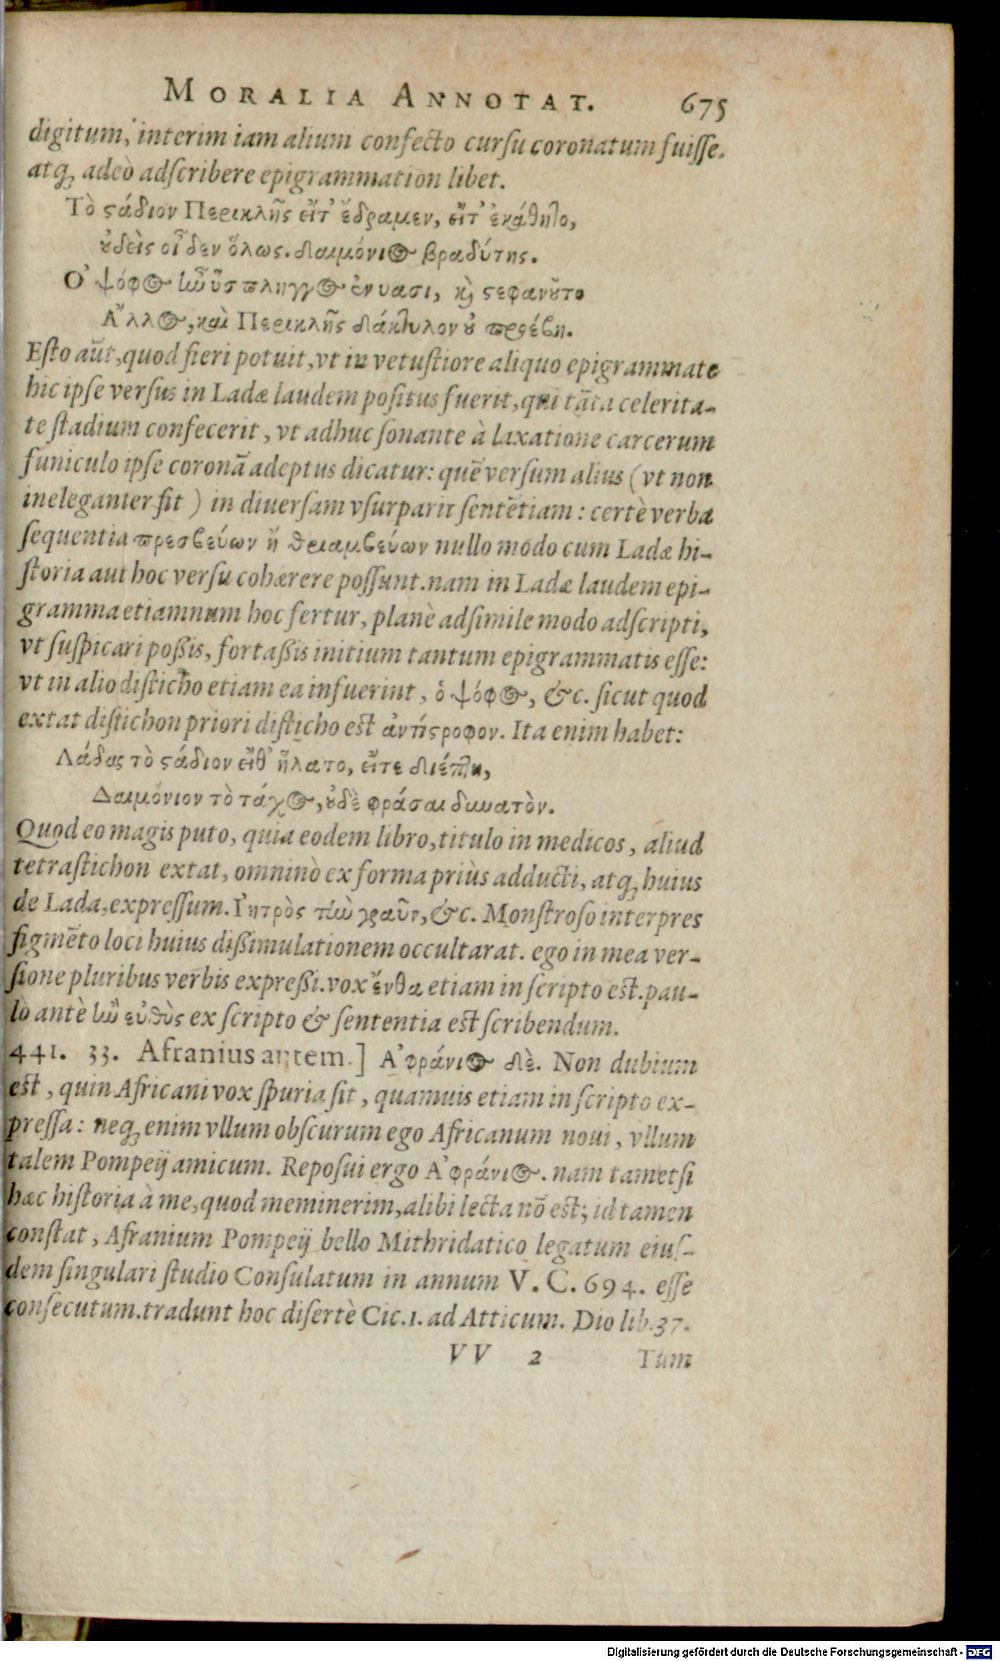 MORALIA ANNOTAT. 675
digitum, interim iam alium confecto cursu coronatum fuisse.
atq; adeò adscribere epigrammation libet.
Τὸ ϛάδιον Περικλῆς εἴτ' ἔδραμεν, εἴτ' ἐκάθητο,
ȣδεὶς οἶδεν ὅλως. δαιμόνιος βραδύτης.
Ο' ψόφος ἦν ὕσπληγγος ἐν ȣασι, κỳ ϛεφανȣ͂το
Α῎λλος, καὶ Περικλῆς δάκτυλον ȣ προέβη.
Esto aũt, quod fieri potuit, vt in vetustiore aliquo epigrammate
hic ipse versus in Ladæ laudem positus fuerit, qui tãta celerita-
te stadium confecerit, vt adhuc sonante à laxatione carcerum
funiculo ipse coronã adeptus dicatur: quẽ versum alius (vt non
ineleganter fit) in diuersam vsurparit sentẽtiam: certè verba
sequentia πρεσβεύων ἢ θριαμβεύων nullo modo cum Ladæ hi-
storia aut hoc versu cohærere possunt. nam in Ladæ laudem epi-
gramma etiamnum hoc fertur, planè adsimile modo adscripti,
vt suspicari possis, fortassis initium tantum epigrammatis esse:
vt in alio disticho etiam ea infuerint, ὁ ψόφος, &c. sicut quod
extat distichon priori disticho est ἀντίϛροφον. Ita enim habet:
Λάδας τὸ ϛάδιον εἴθ' ἥλατο, εἴτε διέπτη,
Δαιμόνιον τὸ τάχος, ȣδὲ φράσαι δυνατὸν.
Quod eo magis puto, quia eodem libro, titulo in medicos, aliud
tetrastichon extat, omninò ex forma priùs adducti, atq; huius
de Lada, expressum. Ι'ητρὸς τὴν γραῦν, &c. Monstroso interpres
figmẽto loci huius dissimulationem occultarat. ego in mea ver-
sione pluribus verbis expressi. vox ἔνθα etiam in scripto est. pau-
lò antè ἦν εὐθὺς ex scripto & sententia est scribendum.
441. 33. Afranius autem.] Α'φράνιος δὲ. Non dubium
est, quin Africani vox spuria sit, quamuis etiam in scripto ex-
pressa: neq; enim vllum obscurum ego Africanum noui, vllum
talem Pompeij amicum. Reposui ergo Α'φράνιος. nam tametsi
hæc historia à me, quod meminerim, alibi lecta nõ est; id tamen
constat, Afranium Pompeij bello Mithridatico legatum eius-
dem singulari studio Consulatum in annum V. C. 694. esse
consecutum. tradunt hoc disertè Cic. 1. ad Atticum. Dio lib. 37.
VV 2 Tum
Digitalisierung gefördert durch die Deutsche Forschungsgemeinschaft - DFG